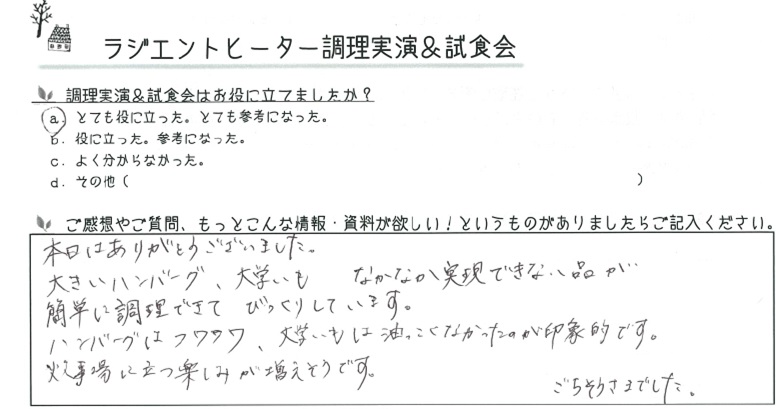 ラジエントヒーター調理実演&試食会
調理実演&試食会はお役に立てましたか?
a. とても役に立った。とても参考になった。
b. 役に立った。参考になった。
c. よく分からなかった。
d. その他( )
ご感想やご質問、もっとこんな情報・資料が欲しい!というものがありましたらご記入ください。
本日はありがとうございました。
大きいハンバーグ、大学いも なかなか実現できない品が
簡単に調理できて びっくりしています。
ハンバーグはフワフワ、大学いもは油っこくなかったのが印象的です。
炊事場に立つ楽しみが増えそうです。
ごちそうさまでした。